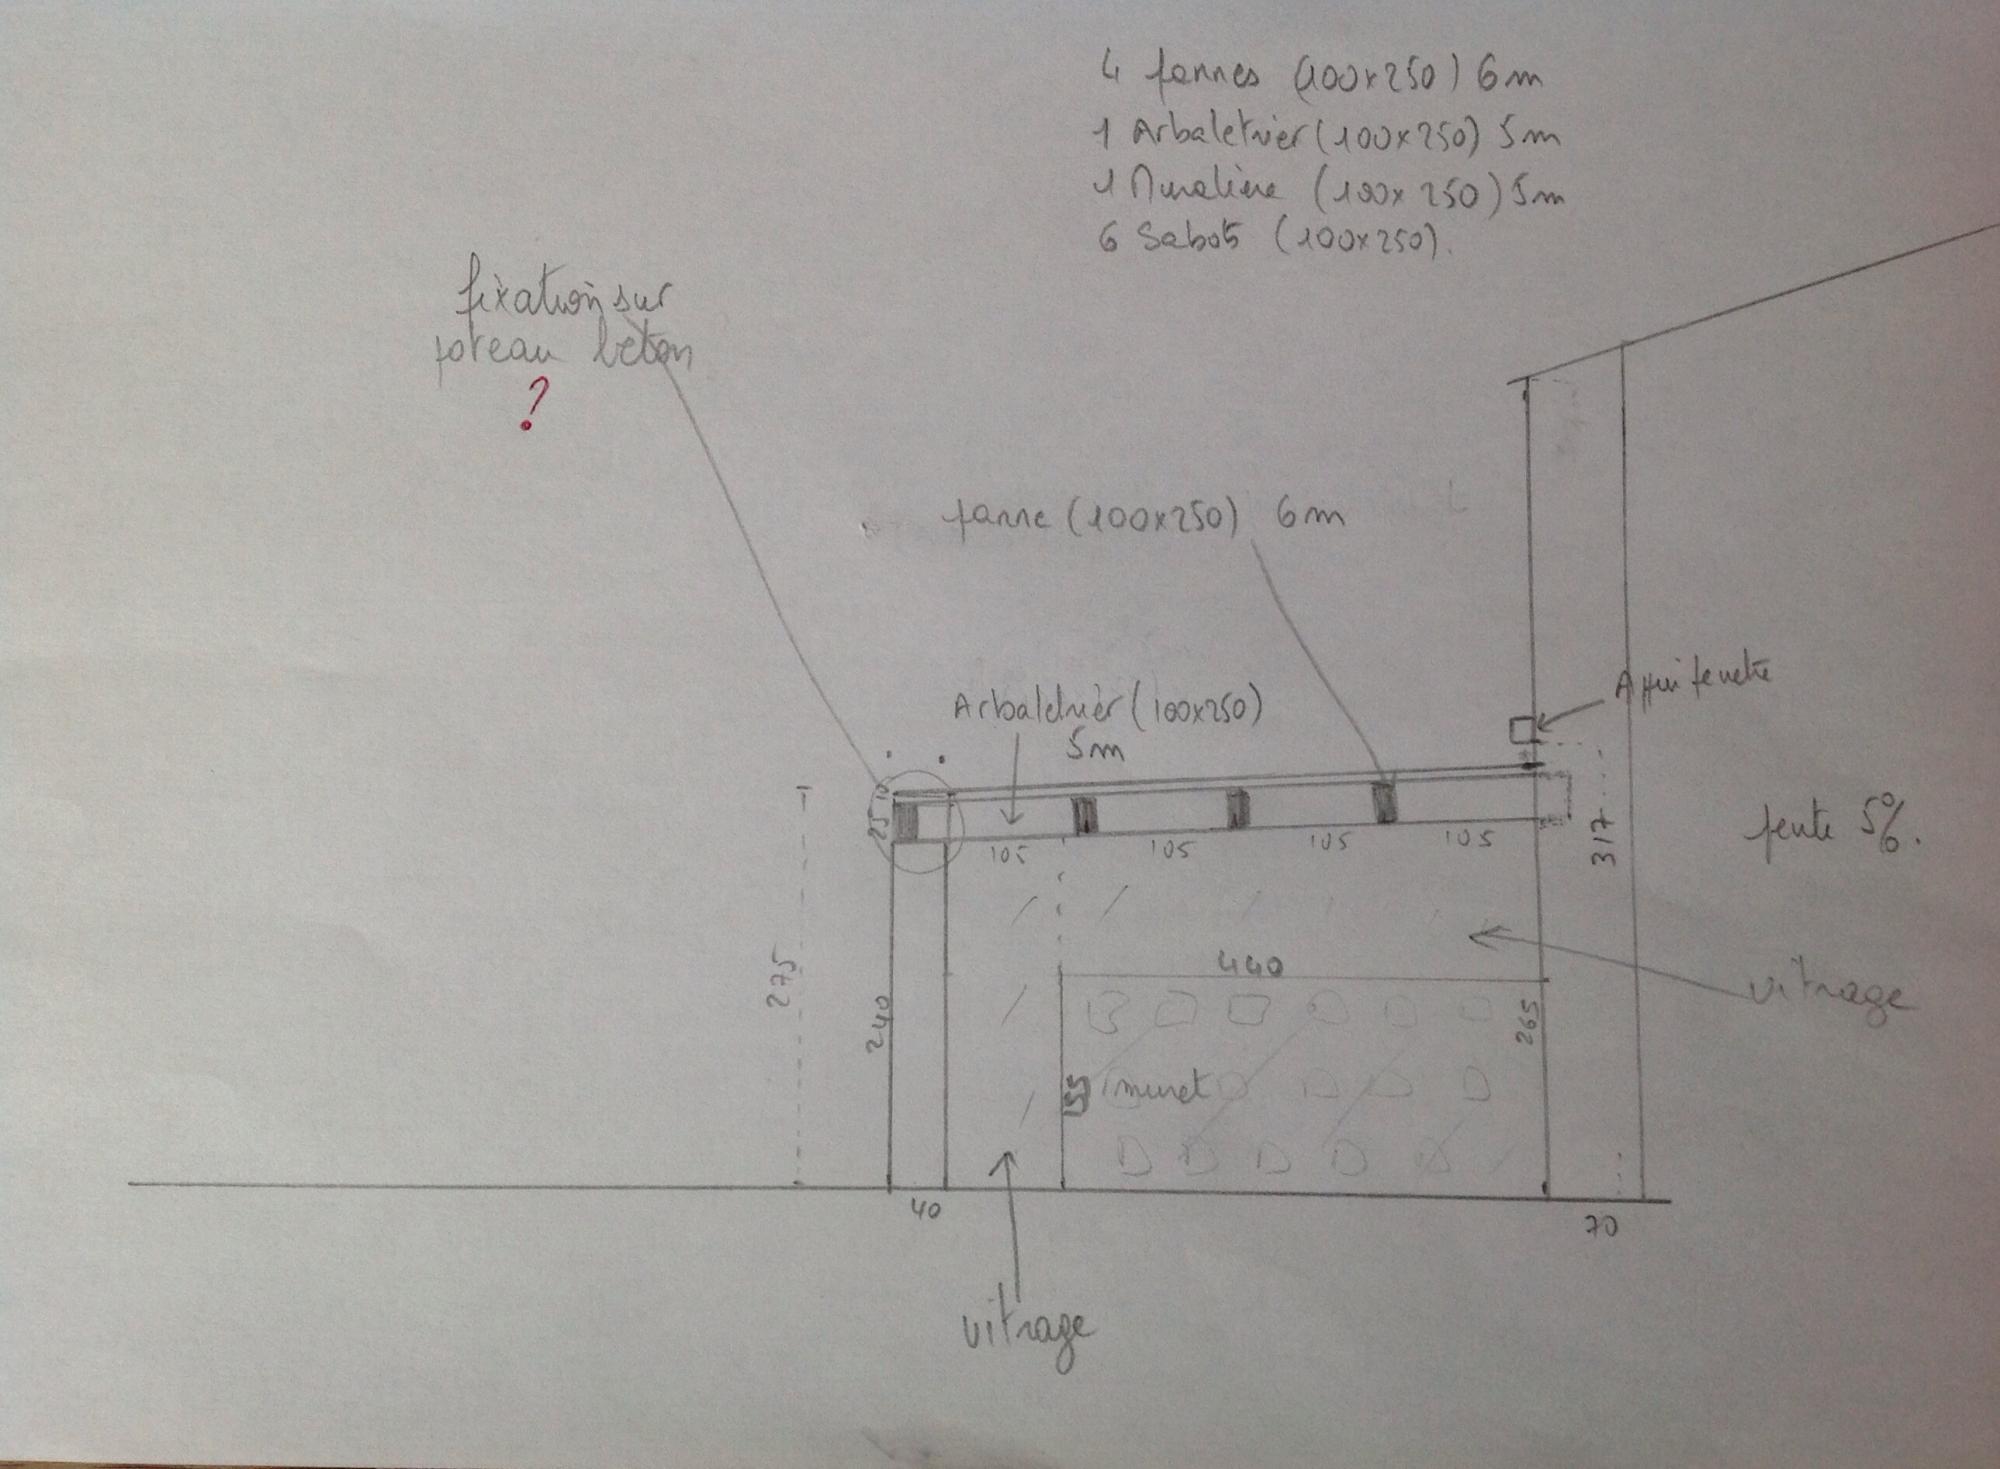 4 pannes (100x250) 6m
1 Arbaletrier (100x250) 5m
1 Muralière (100x250) 5m
6 Sabots (100x250).
fixation sur
poteau beton
?
panne (100x250) 6m
Appui fenetre
Arbaletrier (100x250)
5m
10
25
105
105
105
105
317
pente 5%.
275
240
440
265
vitrage
155
muret
40
70
vitrage